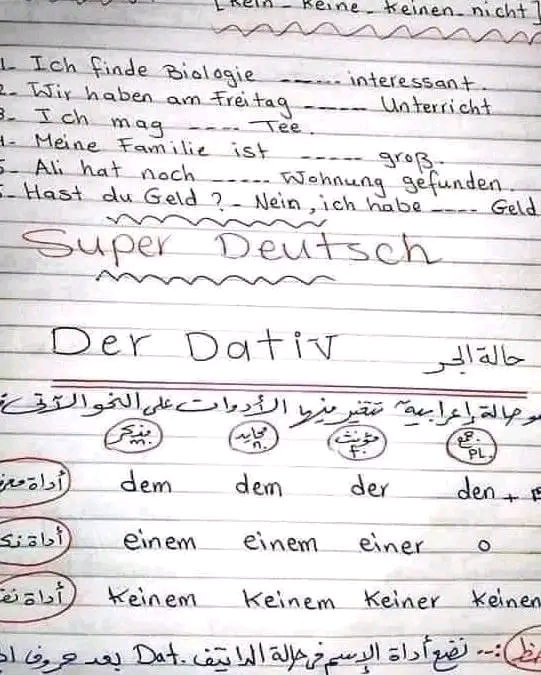 [kein - keine - keinen - nicht]
1- Ich finde Biologie ----- interessant.
2- Wir haben am Freitag ----- Unterricht
3- Ich mag ---- Tee.
4- Meine Familie ist ----- groß.
5- Ali hat noch ----- Wohnung gefunden.
- Hast du Geld ? - Nein, ich habe ---- Geld
Super Deutsch
Der Dativ حالة الجر
حالة إعرابية تتغير فيها الأدوات على النحو الآتي
مذكر m. محايد n. مؤنث F. جمع PL.
أداة dem dem der den +
أداة einem einem einer o
أداة keinem keinem keiner keinen
:-- نضع أداة الإسم في حالة الداتيف Dat. بعد حروف